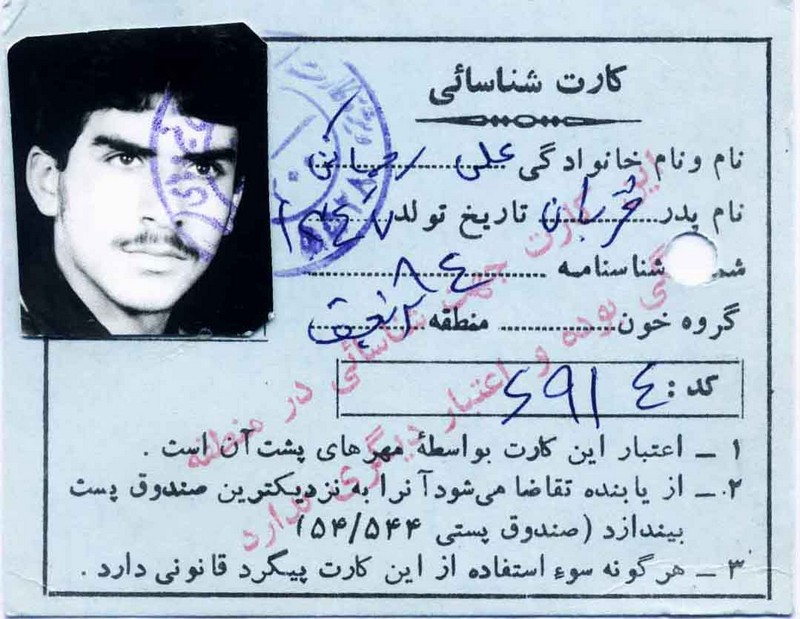 کارت شناسائی
نام ونام خانوادگی علی رحمانی
نام پدر قربان تاریخ تولد ۱۳۴۷
شما شناسنامه ۸۴
گروه خون منطقه
کد : ۶۹۱۴
۱ ـ اعتبار این کارت بواسطهٔ مهرهای پشت آن است .
۲ ـ از یابنده تقاضا می‌شود آنرا به نزدیکترین صندوق پست
بیندازد (صندوق پستی ۵۴/۵۴۴)
۳ ـ هرگونه سوء استفاده از این کارت پیگرد قانونی دارد .
این کارت جهت شناسائی در منطقه
بوده و اعتبار دیگری ندارد